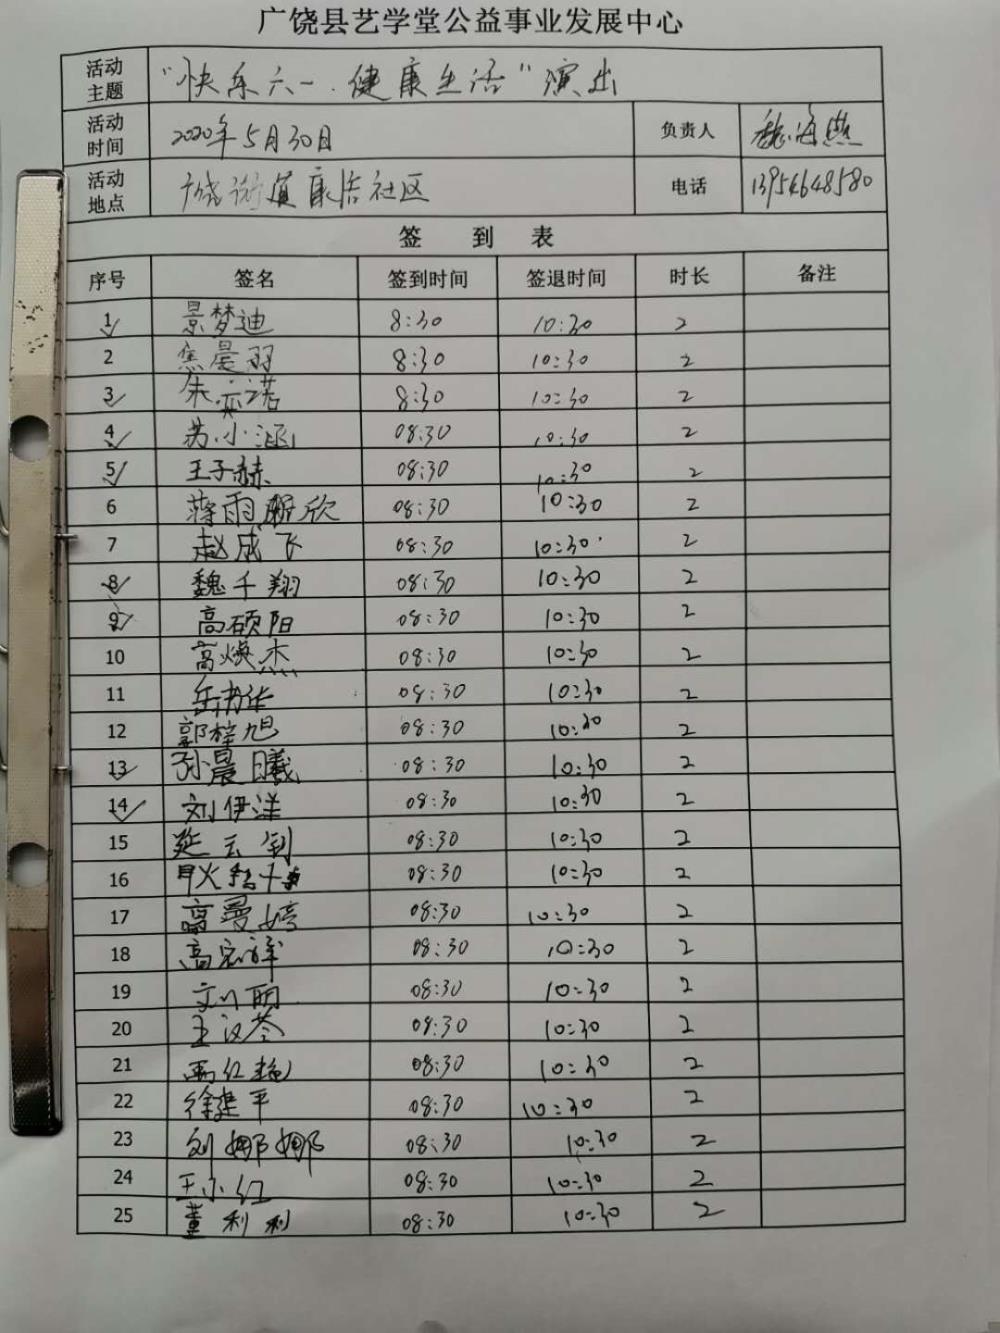 广饶县艺学堂公益事业发展中心
活动主题 "快乐六一·健康生活"演出
活动时间 2020年5月30日 负责人 魏海燕
活动地点 广饶街道康居社区 电话 13954648580
签 到 表
序号 签名 签到时间 签退时间 时长 备注
1 景梦迪 8:30 10:30 2
2 焦晨羽 8:30 10:30 2
3 朱亦诺 8:30 10:30 2
4 苏小涵 08:30 10:30 2
5 王子赫 08:30 10:30 2
6 蒋雨欣 08:30 10:30 2
7 赵成飞 08:30 10:30 2
8 魏千翔 08:30 10:30 2
9 高硕阳 08:30 10:30 2
10 高焕杰 08:30 10:30 2
11 08:30 10:30 2
12 郭梓旭 08:30 10:30 2
13 孙晨曦 08:30 10:30 2
14 刘伊洋 08:30 10:30 2
15 延云钊 08:30 10:30 2
16 08:30 10:30 2
17 高曼婷 08:30 10:30 2
18 高宏祥 08:30 10:30 2
19 刘丽 08:30 10:30 2
20 王汉苓 08:30 10:30 2
21 红艳 08:30 10:30 2
22 徐建平 08:30 10:30 2
23 刘娜娜 08:30 10:30 2
24 王小红 08:30 10:30 2
25 董利利 08:30 10:30 2